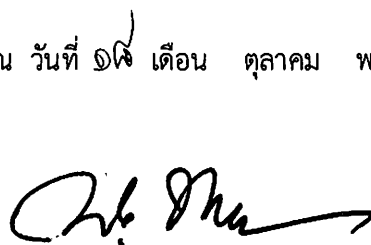 ณ วันที่ ๑๘ เดือน ตุลาคม พ